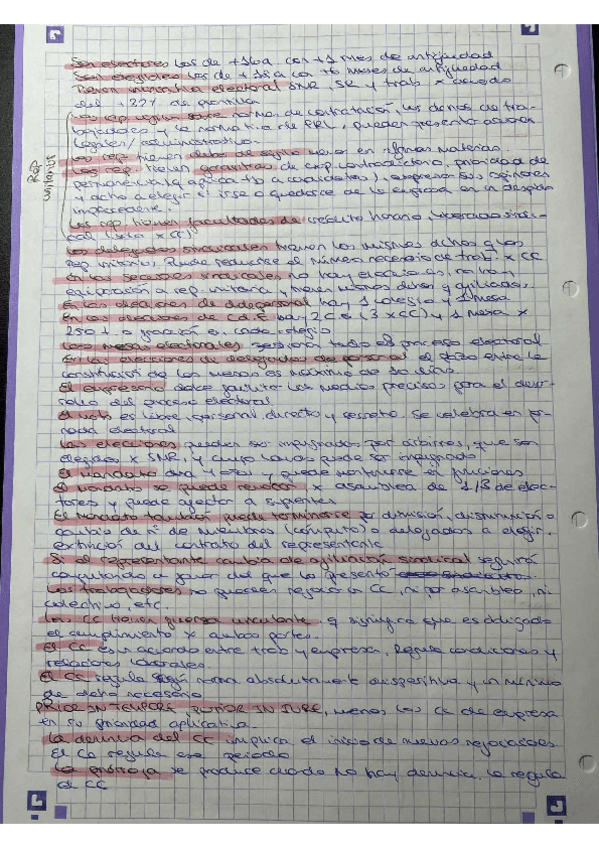 Son electores los de +16a con +1 mes de antigüedad
Son elegibles los de +18a con +6 meses de antigüedad
Tienen iniciativa electoral SMR, SR y trab x acuerdo
del +33% de plantilla
Los rep vigilan sobre normas de contratación, los demás de tra-
bajadores y la normativa de PRL, pueden presentar acciones
legales/administrativas.
Los rep tienen deber de sigilo en algunas materias.
Los rep. tienen garantías de exp contradictorio, prioridad de
permanencia (aplica tb a candidatos), expresar sus opiniones
y dcho a elegir si irse o quedarse de la empresa en un despido
improcedente.
Rep unitarios
Los rep tienen facultades de crédito horario,
Los delegados sindicales tienen los mismos dchos q los
rep unitarios. Puede reducirse el número necesario de trab. x CC
En las secciones sindicales no hay elecciones, no hay
equiparación a rep unitaria y tienen mismos dchos y afiliados.
En las elecciones de del personal hay 1 colegio y 1 mesa
En las elecciones de CdE hay 2 CE (3 x CC) y 1 mesa x
250 t. o fracción en cada colegio
Las mesas electorales todo el proceso electoral
En las elecciones de delegados de personal el entre la
constitución de las mesas es máximo de 10 días.
El empresario debe facilitar los medios precisos para el desa-
rrollo del proceso electoral
El voto es libre, personal directo y secreto. Se celebra en jor-
nada electoral
Las elecciones pueden ser impugnadas por árbitros, que son
elegidos x SMR, y cuyo laudo puede ser impugnado
El mandato dura 4 años y puede mantenerse en funciones
El mandato se puede revocar x asamblea de 1/3 de elec-
tores y puede afectar a suplentes
El mandato también puede terminarse x dimisión, disminución o
cambio de nº de miembros (cómputo) o delegados a elegir.
extinción del contrato del representante
Si el representante cambia de afiliación sindical seguirá
computando a favor del que lo presentó
Los trabajadores no pueden negociar un CC, ni por asamblea, ni
colectivo, etc.
Los CC tienen fuerza vinculante, q significa que es obligado
el cumplimiento x ambas partes.
El CC es un acuerdo entre trab y empresa. Regula condiciones y
relaciones laborales.
El CC regula según norma absolutamente dispositiva y un mínimo
de dcho necesario
PRIOR IN TEMPORE POTIOR IN IURE, menos los CC de empresa
en su prioridad aplicativa.
La denuncia del CC implica el inicio de nuevas negociaciones
El CC regula ese periodo
La prórroga se produce cuando no hay denuncia. Lo regula
el CC